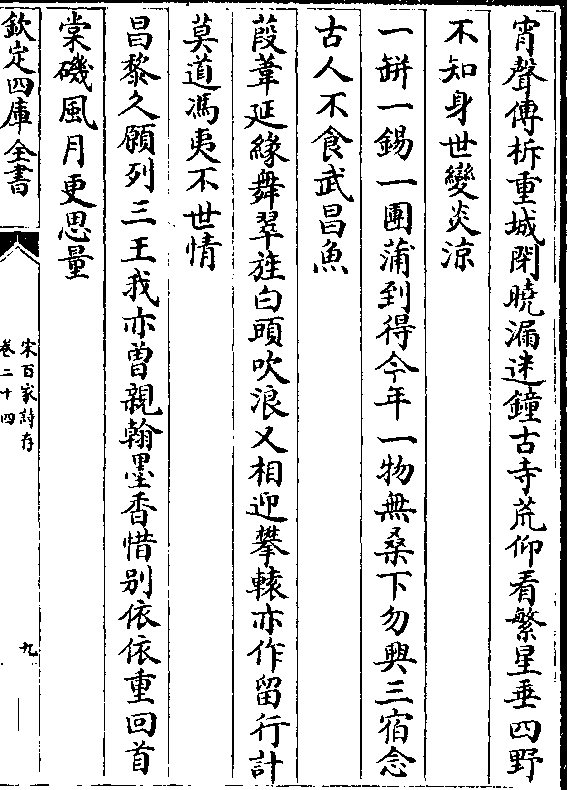 宵聲傳柝重城閉曉漏迷鐘古寺荒仰看繁星垂四野
不知身世變炎涼
一缾一錫一團蒲到得今年一物無桑下勿興三宿念
古人不食武昌魚
葭葦延緣舞翠旌白頭吹浪又相迎攀轅亦作留行計
莫道馮夷不世情
昌黎久願列三王我亦曽親翰墨香惜别依依重回首
棠磯風月更思量
欽定四庫全書
宋百家詩存
卷二十四
九